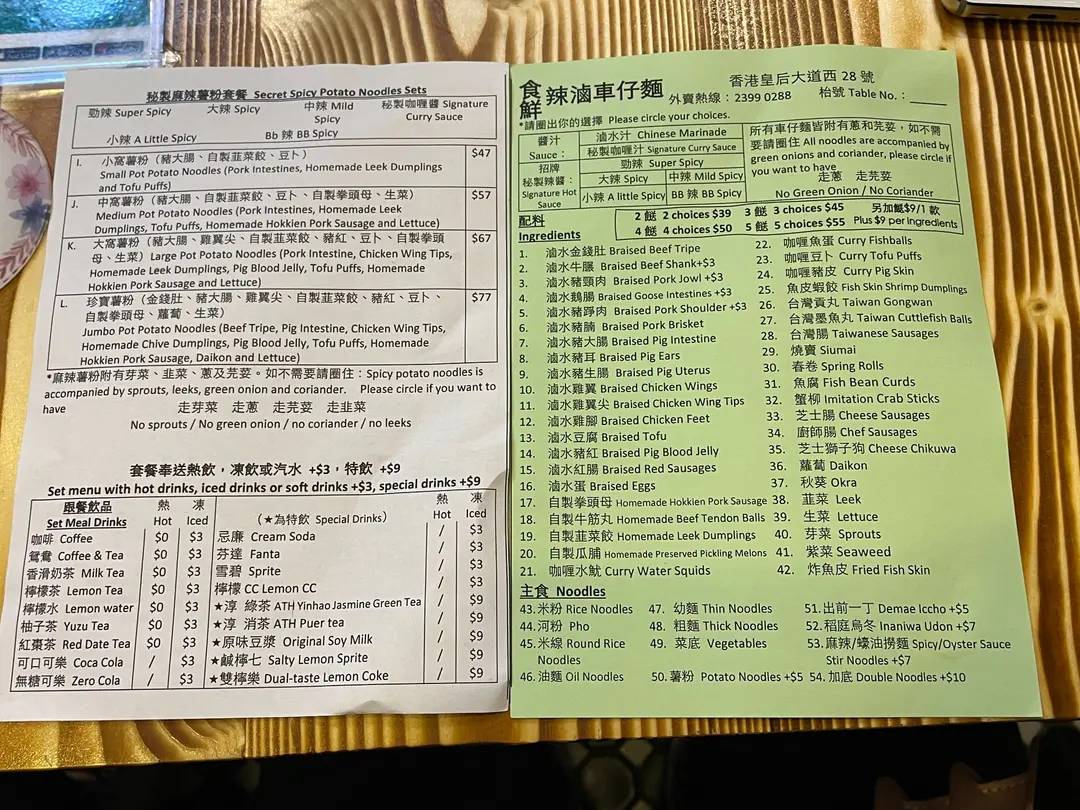 秘製麻辣薯粉套餐 Secret Spicy Potato Noodles Sets
勁辣 Super Spicy
大辣 Spicy
中辣 Mild Spicy
秘製咖喱醬 Signature Curry Sauce
小辣 A Little Spicy
Bb 辣 BB Spicy
I. 小窩薯粉（豬大腸、自製韮菜餃、豆卜） $47
Small Pot Potato Noodles (Pork Intestines, Homemade Leek Dumplings
and Tofu Puffs)
J. 中窩薯粉（豬大腸、自製韮菜餃、豆卜、自製拳頭母、生菜） $57
Medium Pot Potato Noodles (Pork Intestines, Homemade Leek
Dumplings, Tofu Puffs, Homemade Hokkien Pork Sausage and Lettuce)
K. 大窩薯粉（豬大腸、雞翼尖、自製韮菜餃、豬紅、豆卜、自製拳頭 $67
母、生菜）Large Pot Potato Noodles (Pork Intestine, Chicken Wing Tips,
Homemade Leek Dumplings, Pig Blood Jelly, Tofu Puffs, Homemade
Hokkien Pork Sausage and Lettuce)
L. 珍寶薯粉（金錢肚、豬大腸、雞翼尖、自製韮菜餃、豬紅、豆卜、 $77
自製拳頭母、蘿蔔、生菜）
Jumbo Pot Potato Noodles (Beef Tripe, Pig Intestine, Chicken Wing Tips,
Homemade Chive Dumplings, Pig Blood Jelly, Tofu Puffs, Homemade
Hokkien Pork Sausage, Daikon and Lettuce)
*麻辣薯粉附有芽菜、韭菜、蔥及芫荽。如不需要請圈住：Spicy potato noodles is
accompanied by sprouts, leeks, green onion and coriander. Please circle if you want to
have
走芽菜 走蔥 走芫荽 走韭菜
No sprouts / No green onion / no coriander / no leeks
套餐奉送熱飲，凍飲或汽水 +$3，特飲 +$9
Set menu with hot drinks, iced drinks or soft drinks +$3, special drinks +$9
跟餐飲品 Set Meal Drinks 熱 Hot 凍 Iced
（★為特飲 Special Drinks） 熱 Hot 凍 Iced
咖啡 Coffee $0 $3 忌廉 Cream Soda / $3
鴛鴦 Coffee & Tea $0 $3 芬達 Fanta / $3
香滑奶茶 Milk Tea $0 $3 雪碧 Sprite / $3
檸檬茶 Lemon Tea $0 $3 檸檬 CC Lemon CC / $3
檸檬水 Lemon water $0 $3 ★淳 綠茶 ATH Yinhao Jasmine Green Tea / $9
柚子茶 Yuzu Tea $0 $3 ★淳 消茶 ATH Puer tea / $9
紅棗茶 Red Date Tea $0 $3 ★原味豆漿 Original Soy Milk / $9
可口可樂 Coca Cola / $3 ★鹹檸七 Salty Lemon Sprite / $9
無糖可樂 Zero Cola / $3 ★雙檸樂 Dual-taste Lemon Coke / $9
食鮮辣滷車仔麵
香港皇后大道西 28 號
外賣熱線：2399 0288 枱號 Table No.：
*請圈出你的選擇 Please circle your choices.
醬汁 Sauce：
滷水汁 Chinese Marinade
秘製咖喱醬 Signature Curry Sauce
招牌秘製辣醬：Signature Hot Sauce
勁辣 Super Spicy
大辣 Spicy 中辣 Mild Spicy
小辣 A little Spicy BB 辣 BB Spicy
所有車仔麵皆附有蔥和芫荽，如不需
要請圈住 All noodles are accompanied by
green onions and coriander, please circle if
you want to have
走蔥 走芫荽
No Green Onion / No Coriander
配料
Ingredients
2 餸 2 choices $39 3 餸 3 choices $45 另加餸$9/1 款
4 餸 4 choices $50 5 餸 5 choices $55 Plus $9 per Ingredients
1. 滷水金錢肚 Braised Beef Tripe
2. 滷水牛𦟌 Braised Beef Shank+$3
3. 滷水豬頸肉 Braised Pork Jowl +$3
4. 滷水鵝腸 Braised Goose Intestines +$3
5. 滷水豬踭肉 Braised Pork Shoulder +$3
6. 滷水豬腩 Braised Pork Brisket
7. 滷水豬大腸 Braised Pig Intestine
8. 滷水豬耳 Braised Pig Ears
9. 滷水豬生腸 Braised Pig Uterus
10. 滷水雞翼 Braised Chicken Wings
11. 滷水雞翼尖 Braised Chicken Wing Tips
12. 滷水雞腳 Braised Chicken Feet
13. 滷水豆腐 Braised Tofu
14. 滷水豬紅 Braised Pig Blood Jelly
15. 滷水紅腸 Braised Red Sausages
16. 滷水蛋 Braised Eggs
17. 自製拳頭母 Homemade Hokkien Pork Sausage
18. 自製牛筋丸 Homemade Beef Tendon Balls
19. 自製韮菜餃 Homemade Leek Dumplings
20. 自製瓜脯 Homemade Preserved Pickling Melons
21. 咖喱水魷 Curry Water Squids
22. 咖喱魚蛋 Curry Fishballs
23. 咖喱豆卜 Curry Tofu Puffs
24. 咖喱豬皮 Curry Pig Skin
25. 魚皮蝦餃 Fish Skin Shrimp Dumplings
26. 台灣貢丸 Taiwan Gongwan
27. 台灣墨魚丸 Taiwan Cuttlefish Balls
28. 台灣腸 Taiwanese Sausages
29. 燒賣 Siumai
30. 春卷 Spring Rolls
31. 魚腐 Fish Bean Curds
32. 蟹柳 Imitation Crab Sticks
33. 芝士腸 Cheese Sausages
34. 廚師腸 Chef Sausages
35. 芝士獅子狗 Cheese Chikuwa
36. 蘿蔔 Daikon
37. 秋葵 Okra
38. 韮菜 Leek
39. 生菜 Lettuce
40. 芽菜 Sprouts
41. 紫菜 Seaweed
42. 炸魚皮 Fried Fish Skin
主食 Noodles
43. 米粉 Rice Noodles 47. 幼麵 Thin Noodles 51. 出前一丁 Demae Iccho +$5
44. 河粉 Pho 48. 粗麵 Thick Noodles 52. 稻庭烏冬 Inaniwa Udon +$7
45. 米線 Round Rice Noodles 49. 菜底 Vegetables 53. 麻辣/蠔油撈麵 Spicy/Oyster Sauce Stir Noodles +$7
46. 油麵 Oil Noodles 50. 薯粉 Potato Noodles +$5 54. 加底 Double Noodles +$10